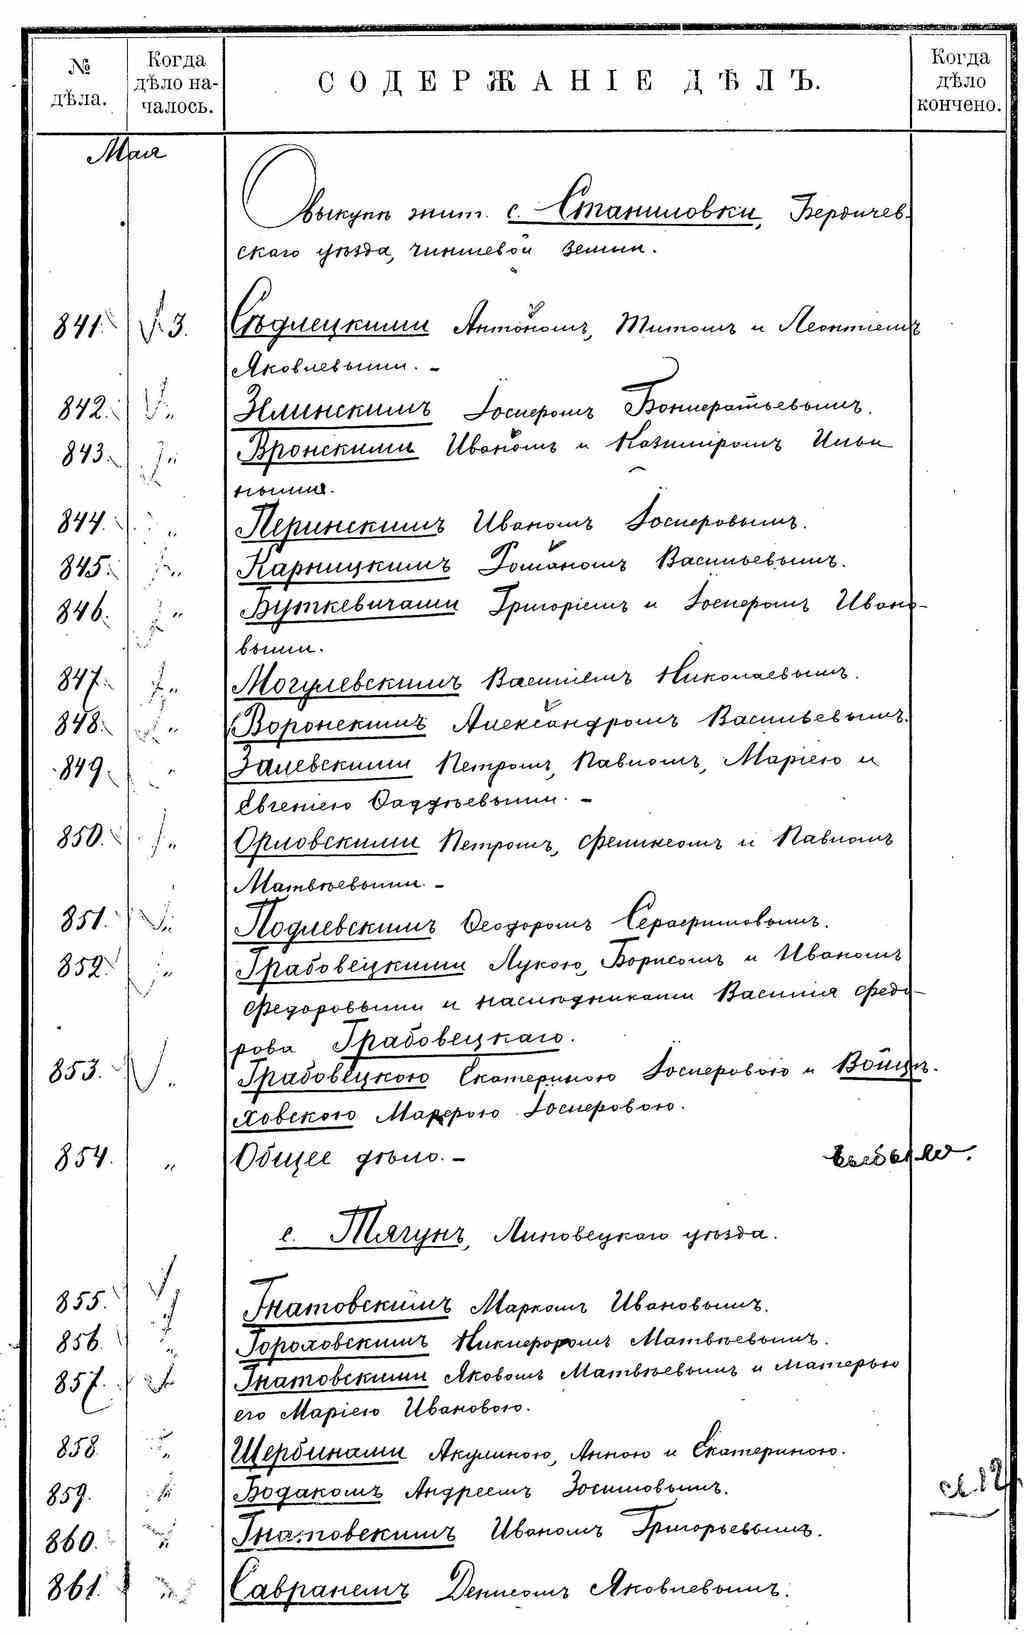 № дѣла. Когда дѣло началось. СОДЕРЖАНІЕ ДѢЛЪ. Когда дѣло кончено.
Мая
О выкупѣ жит. с. Станиловки, Бердичев-
скаго уѣзда, чиншевой земли.
841. 3. Сѣдлецкими Антономъ, Титомъ и Леонтіемъ
Яковлевыми. –
842. „ Зелинскимъ Іосифомъ Бонифатьевымъ.
843. „ Вронскими Иваномъ и Казиміромъ Ильи
ными.
844. „ Перинскимъ Иваномъ Іосифовымъ.
845. „ Карницкимъ Романомъ Васильевымъ.
846. „ Буткевичами Григоріемъ и Іосифомъ Ивано-
выми.
847. „ Могулевскимъ Василіемъ Николаевымъ.
848. „ Воронскимъ Александромъ Васильевымъ.
849. „ Залевскими Петромъ, Павломъ, Маріею и
Евгеніею Фаддѣевыми. –
850. „ Орловскими Петромъ, Феликсомъ и Павломъ
Матвѣевыми. –
851. „ Подлевскимъ Ѳеодоромъ Серафимовымъ.
852. „ Грабовецкими Лукою, Борисомъ и Иваномъ
Федоровыми и наслѣдниками Василія Федо-
рова Грабовецкаго.
853. „ Грабовецкою Екатериною Іосифовою и Войцѣ-
ховскою Марфою Іосифовою.
854. „ Общее дѣло. – выбыло.
с. Тягунъ, Липовецкаго уѣзда.
855. Гнатовскимъ Маркомъ Ивановымъ.
856. „ Гороховскимъ Никифоромъ Матвѣевымъ.
857. „ Гнатовскими Яковомъ Матвѣевымъ и матерью
его Маріею Ивановою.
858 „ Щербинами Акулиною, Анною и Екатериною.
859. „ Бодакомъ Андреемъ Зосимовымъ.
860. „ Гнатовскимъ Иваномъ Григорьевымъ.
861. „ Савранемъ Денисомъ Яковлевымъ.